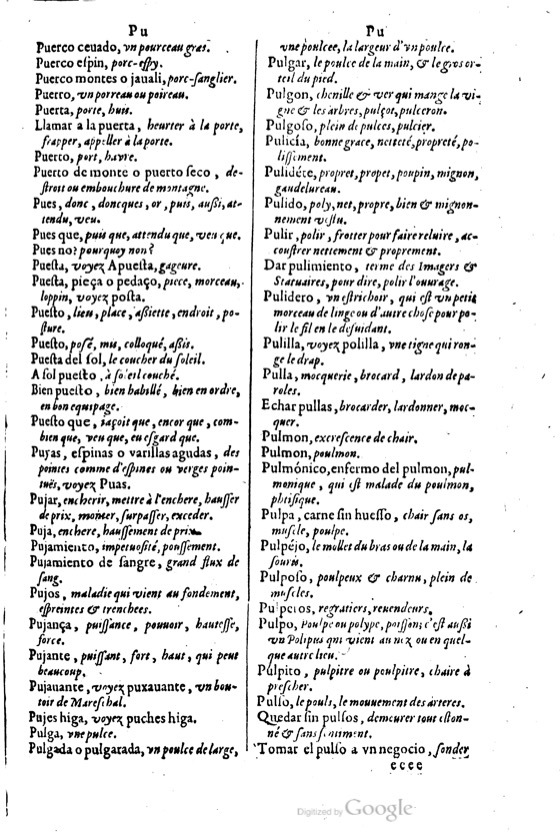 Pu
Puerco ceuado, vn pourceau gras.
Puerco eſpin, porc-eſpy.
Puerco montes o jauali, porc-ſanglier.
Puerro, vn porreau ou poireau.
Puerta, porte, huis.
Llamar a la puerta, heurter à la porte,
frapper, appeller à la porte.
Puerto, port, havre.
Puerto de monte o puerto ſeco, de-
ſtroit ou embouchure de montagne.
Pues, donc, doncques, or, puis, auſsi, at-
tendu, veu.
Pues que, puis que, attendu que, veu que.
Pues no? pourquoy non?
Pueſta, voyez Apueſta, gageure.
Pueſta, pieça o pedaço, piece, morceau,
loppin, voyez poſta.
Pueſto, lieu, place, aſsiette, endroit, po-
ſture.
Pueſto, poſé, mis, colloqué, aſsis.
Pueſta del ſol, le coucher du ſoleil.
A ſol pueſto, à ſoleil couché.
Bien pueſto, bien habillé, bien en ordre,
en bon equipage.
Pueſto que, jaçoit que, encor que, com-
bien que, veu que, eu eſgard que.
Puyas, eſpinas o varillas agudas, des
pointes comme d'eſpines ou verges poin-
tuës, voyez Puas.
Pujar, encherir, mettre à l'enchere, hauſſer
de prix, monter, ſurpaſſer, exceder.
Puja, enchere, hauſſement de prix.
Pujamiento, impetuoſité, pouſſement.
Pujamiento de ſangre, grand flux de
ſang.
Pujos, maladie qui vient au fondement,
eſpreintes & trenchees.
Pujança, puiſſance, pouuoir, hauteſſe,
force.
Pujante, puiſſant, fort, haut, qui peut
beaucoup.
Pujauante, voyez puxauante, vn bou-
toir de Mareſchal.
Pujes higa, voyez puches higa.
Pulga, vne pulce.
Pulgada o pulgarada, vn poulce de large,
Pu
vne poulcee, la largeur d'vn poulce.
Pulgar, le poulce de la main, & le gros or-
teil du pied.
Pulgon, chenille & ver qui mange la vi-
gne & les arbres, pulçot, pulceron.
Pulgoſo, plein de pulces, pulcier.
Pulicía, bonne grace, netteté, propreté, po-
liſſement.
Pulidéte, propret, propet, poupin, mignon,
gaudelureau.
Pulido, poly, net, propre, bien & mignon-
nement veſtu.
Pulir, polir, frotter pour faire reluire, ac-
couſtrer nettement & proprement.
Dar pulimiento, terme des Imagers &
Statuaires, pour dire, polir l'ouurage.
Pulidero, vn eſtrichoir, qui eſt vn petit
morceau de linge ou d'autre choſe pour po-
lir le fil en le deſuidant.
Pulilla, voyez polilla, vne tigne qui ron-
ge le drap.
Pulla, mocquerie, brocard, lardon de pa-
roles.
Echar pullas, brocarder, lardonner, moc-
quer.
Pulmon, excreſcence de chair.
Pulmon, poulmon.
Pulmónico, enfermo del pulmon, pul-
monique, qui eſt malade du poulmon,
phtiſique.
Pulpa, carne ſin hueſſo, chair ſans os,
muſcle, poulpe.
Pulpéjo, le mollet du bras ou de la main, la
ſouris.
Pulpoſo, poulpeux & charnu, plein de
muſcles.
Pulperos, regratiers, reuendeurs.
Pulpo, Poulpe ou polype, poiſſon; c'eſt auſsi
vn Polipus qui vient au nez ou en quel-
que autre lieu.
Púlpito, pulpitre ou poulpitre, chaire à
preſcher.
Pulſo, le pouls, le mouuement des arteres.
Quedar ſin pulſos, demeurer tout eſton-
né & ſans ſentiment.
Tomar el pulſo a vn negocio, ſonder
eeee
Digitized by Google